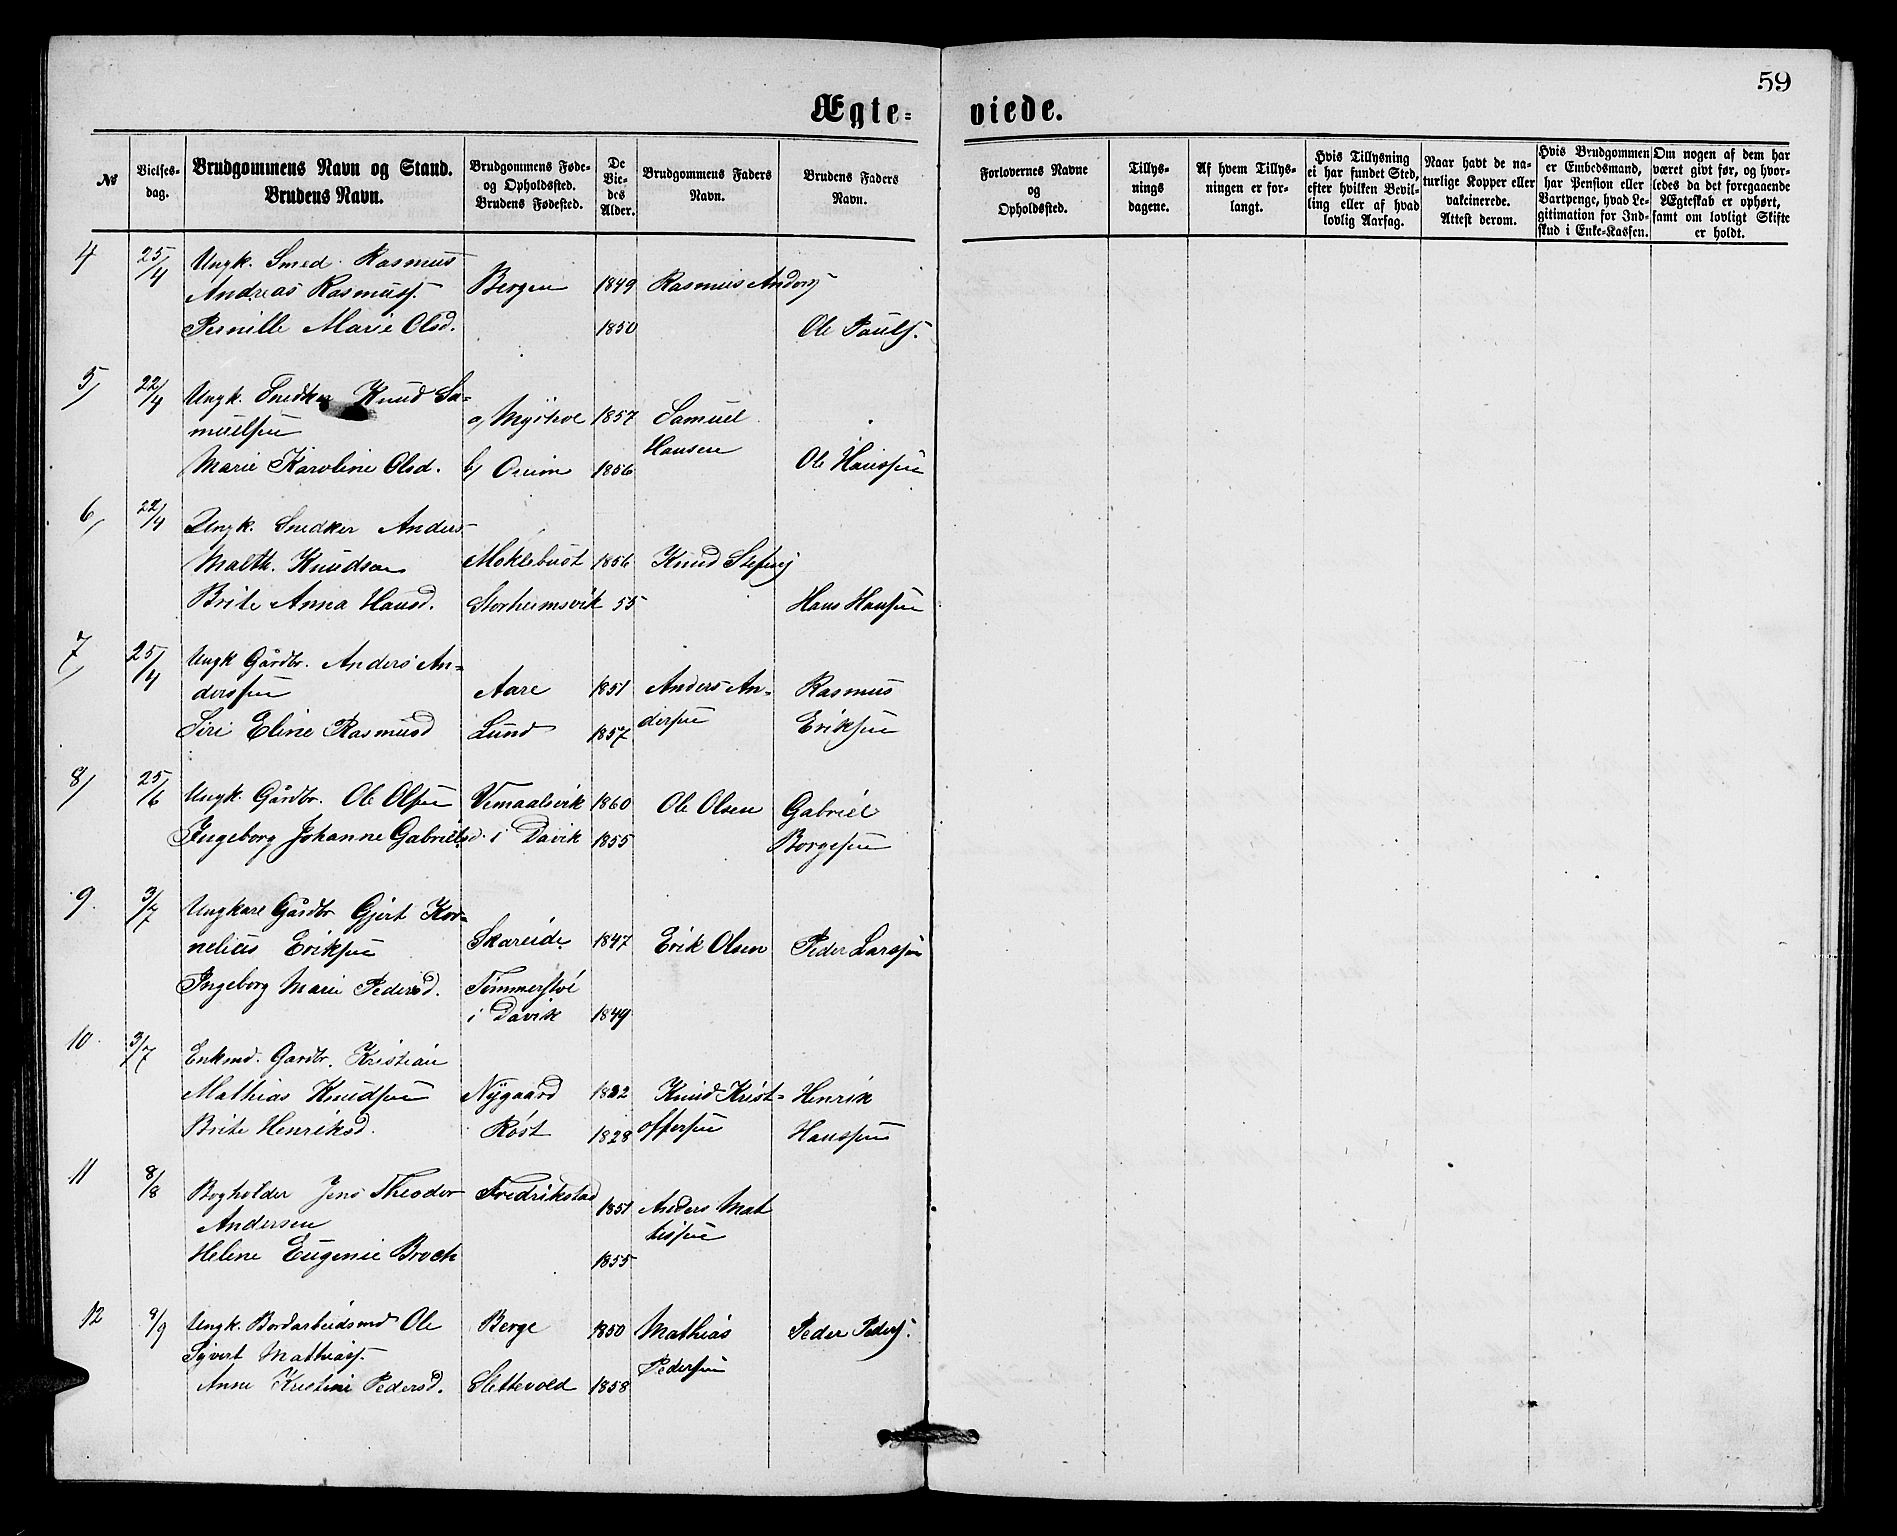 59
Ægte= viede.
№
Vielses-
dag.
Brudgommens Navn og Stand.
Brudens Navn.
Brudgommens Føde-
og Opholdssted.
Brudens Fødested.
De
Vie-
des
Alder.
Brudgommens Faders
Navn.
Brudens Faders
Navn.
Forlovernes Navne
og
Opholdssted.
Tillys-
nings
dagene.
Af hvem Tillys-
ningen er for-
langt.
Hvis Tillysning
ei har fundet Sted,
efter hvilken Bevil-
ling eller af hvad
lovlig Aarsag.
Naar havt de na-
turlige Kopper eller
vakcinerede.
Attest derom.
Hvis Brudgommen
er Embedsmand,
har Pension eller
Vartpenge, hvad Le-
gitimation for Ind-
skud i Enke-Kassen.
Om nogen af dem har
været givt før, og hvor-
ledes da det foregaaende
Ægteskab er ophørt,
samt om lovligt Skifte
er holdt.
4 25/4 Ungk. Smed. Rasmus
Andreas Rasmuss. Bergen 1849 Rasmus Anders
Pernille Marie Olsd. 1850 Ole Pauls.
5, 22/4 Ungk. Snedker Knud Sa=
muelsen a, 1857 Samuel
Hansen
Marie Karoline Olsd. b, 1856 Ole Hanssen
6, 22/4 Ungk. Snedker Anders
Malth. Knudsen Moklebust 1856 Knud
Brite Anna Hansd. Storheimsvik 55 Hans Hansen
7, 25/4 Ungk Gårdbr. Anders An=
derssen Aare 1851 Anders An= Rasmus
dersen
Siri Eline Rasmusd Lund 1857 Eriksen
8, 25/6 Ungk. Gårdbr. Ole Olsen Vemaalsvik 1860 Ole Olsen Gabriel
Ingeborg Johanne Gabrielsd. i Davik 1855 Borgesen
9. 3/7 Ungkarl Gårdbr Gjert Kor=
nelius Eriksen Skareide 1847 Erik Olsen Peder Larssen
Ingeborg Marie Pedersd.
i Davik 1849
10. 3/7 Enkmd. Gardbr. Kristian
Mathias Knudsen Nygaard 1822 Knud Krist= Henrik
Brite Henriksd. Røst 1828 offersen Hanssen
11 8/8 Bogholder Jens Theodor Fredrikstad
1851 Anders Mat
Andersen tissen
Helene Eugenie Broch 1855
12 9/9 Ungk. Bordarbeidsmd Ole Berge 1850 Mathias Peder Peders.
Syvert Mathiass. Pedersen
Anne Kristine Pedersd. Slettevold 1858